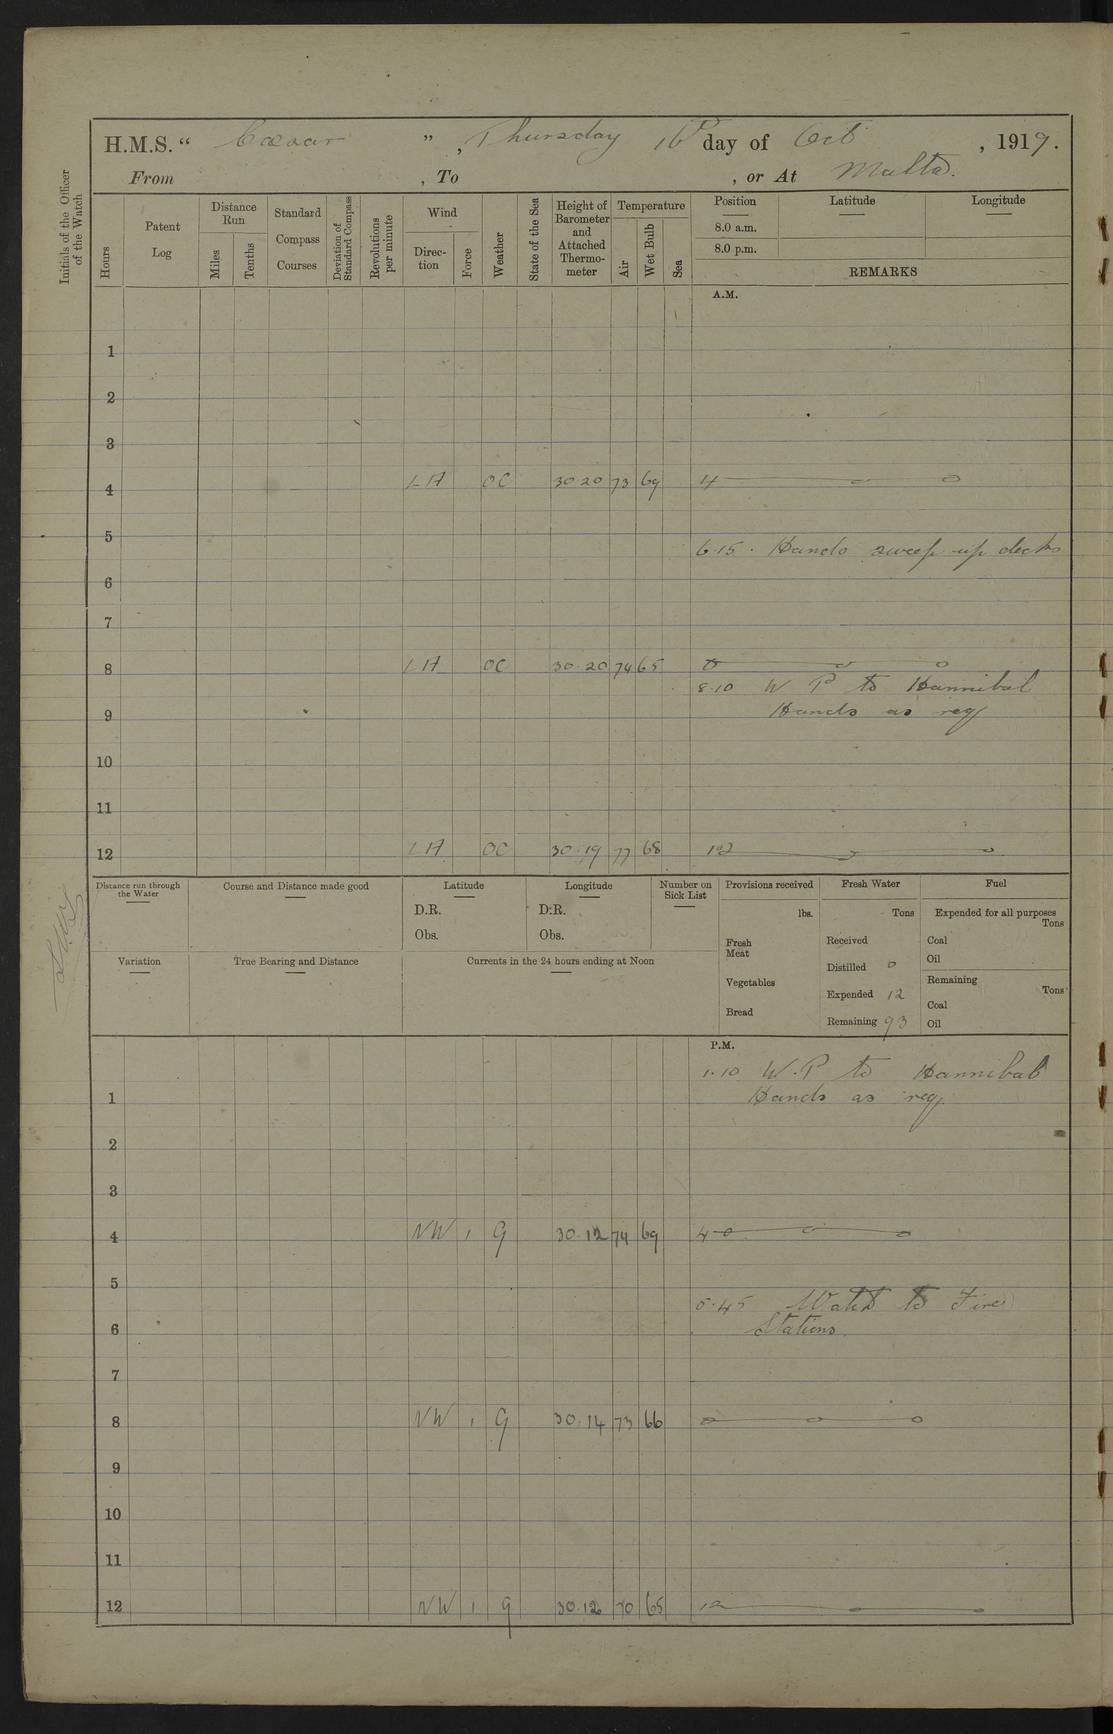 H.M.S. “ Caesar ” , Thursday 16th day of Oct , 1919.
From , To , or At Malta.
Initials of the Officer of the Watch
Hours
Patent Log
Distance Run
Miles
Tenths
Standard Compass Courses
Deviation of Standard Compass
Revolutions per minute
Wind
Direction
Force
Weather
State of the Sea
Height of Barometer and Attached Thermometer
Temperature
Air
Wet Bulb
Sea
Position Latitude Longitude
8.0 a.m.
8.0 p.m.
REMARKS
A.M.
1
2
3
4 LA OC 30.20 73 69 4
5
6.15. Hands sweep up decks
6
7
8 LA OC 30.20 74 65 8
8.10 W P to Hannibal
9 Hands as req
10
11
12 LA OC 30.19 77 68 12
Distance run through the Water
Course and Distance made good
Latitude
D.R.
Obs.
Longitude
D.R.
Obs.
Number on Sick List
Provisions received
lbs.
Fresh Meat
Vegetables
Bread
Fresh Water
Tons
Received
Distilled 0
Expended 12
Remaining 93
Fuel
Expended for all purposes
Tons
Coal
Oil
Remaining
Tons
Coal
Oil
Variation
True Bearing and Distance
Currents in the 24 hours ending at Noon
P.M.
1.10 W.P to Hannibal
1 Hands as req.
2
3
4 NW 1 g 30.12 74 69 4
5
5.45 Watch to Fire
6 Stations.
7
8 NW 1 g 30.14 73 66
9
10
11
12 NW 1 g 30.12 70 65 12